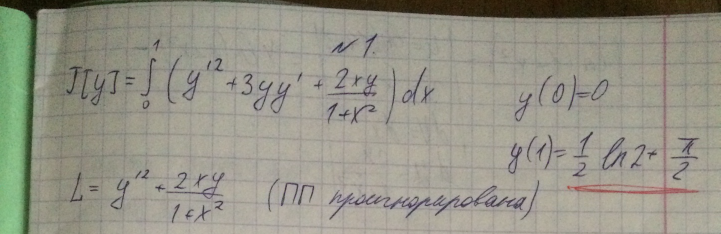 №1.
J[y] = ∫₀¹ (y'² + 3yy' + 2xy/(1+x²)) dx     y(0)=0
y(1) = 1/2 ln2 + π/2
L = y'² + 2xy/(1+x²)   (ПП проигнорирована)